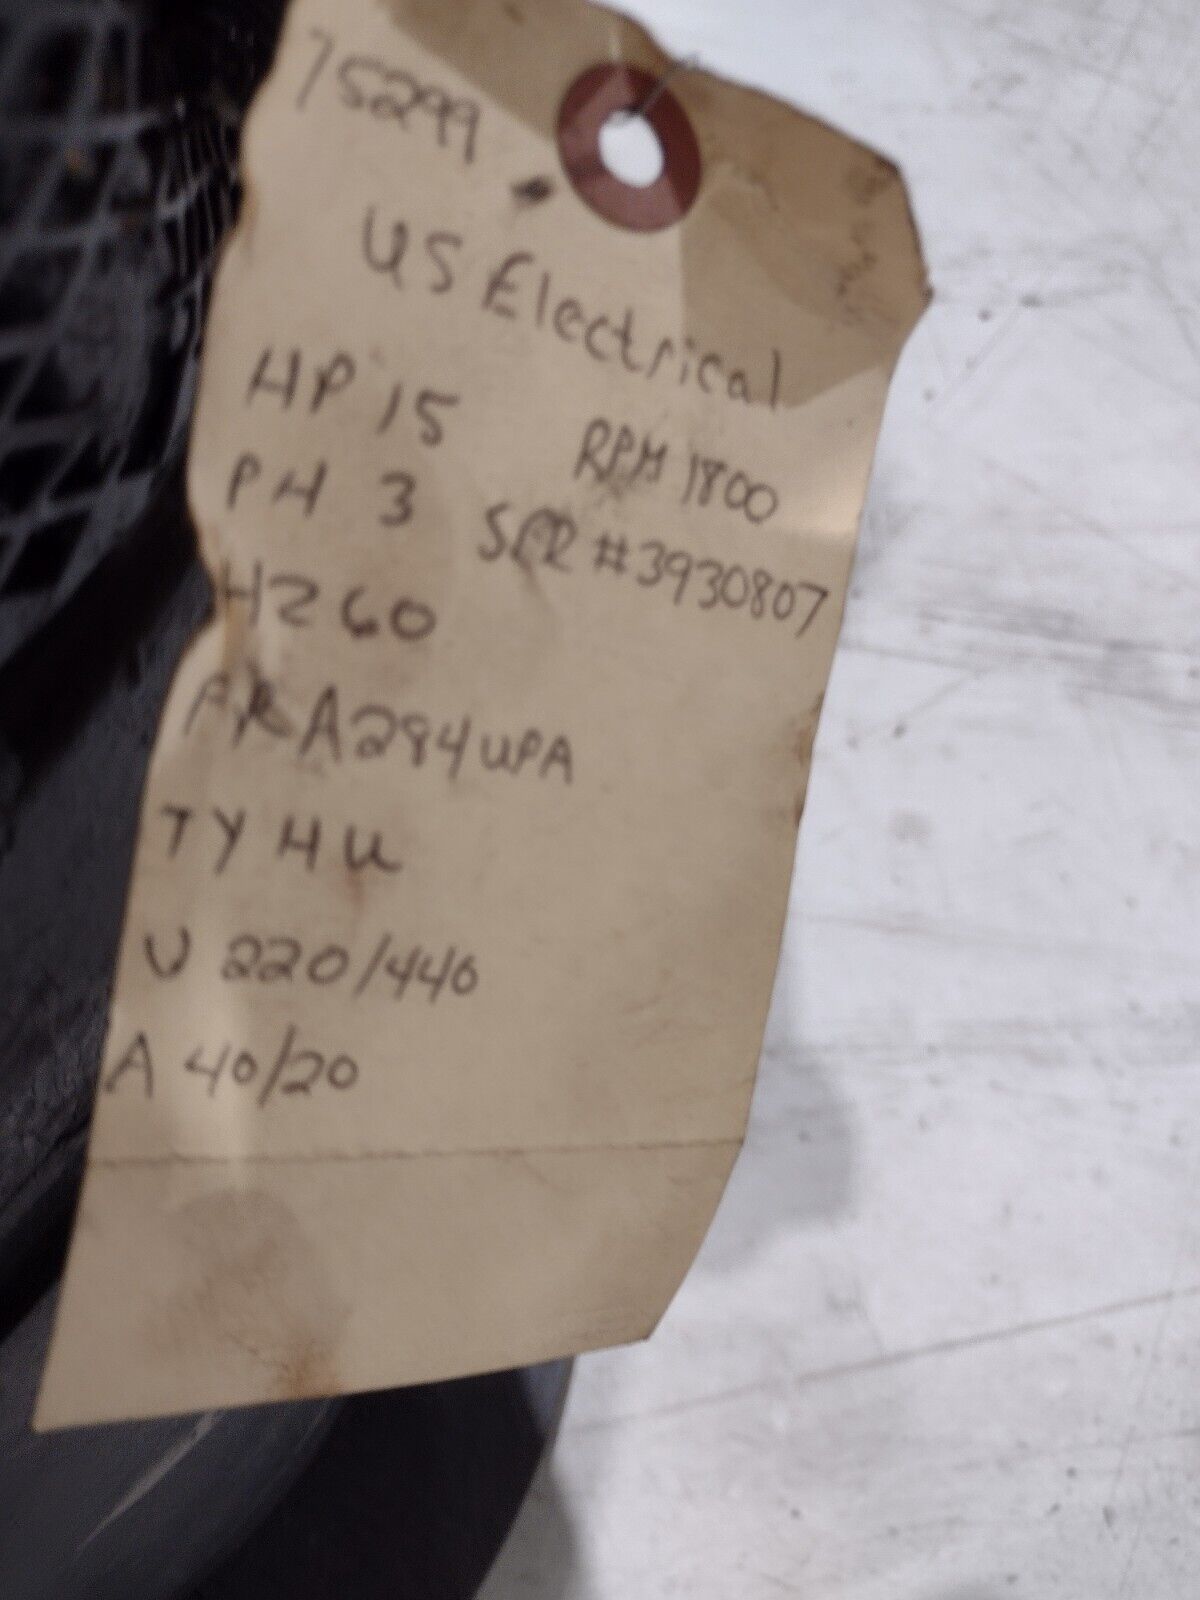 75299
US Electrical
HP 15 RPM 1800
PH 3 SER #3930807
HZ 60
FR A284UPA
TY HU
V 220/440
A 40/20